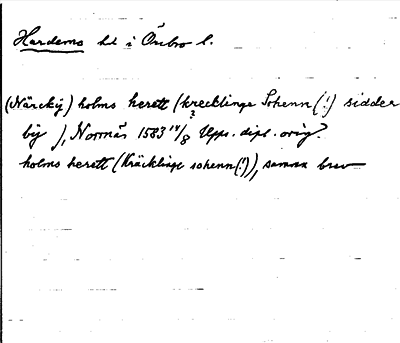 Hardemo hd i Örebro l.
(Närcky) holms herett (krecklinge Sohenn (!) sidder
?
by), Normäs 1583 14/8 Upps. dipl. orig?
holms herett (Kräcklinge sohenn (!)), samma brev